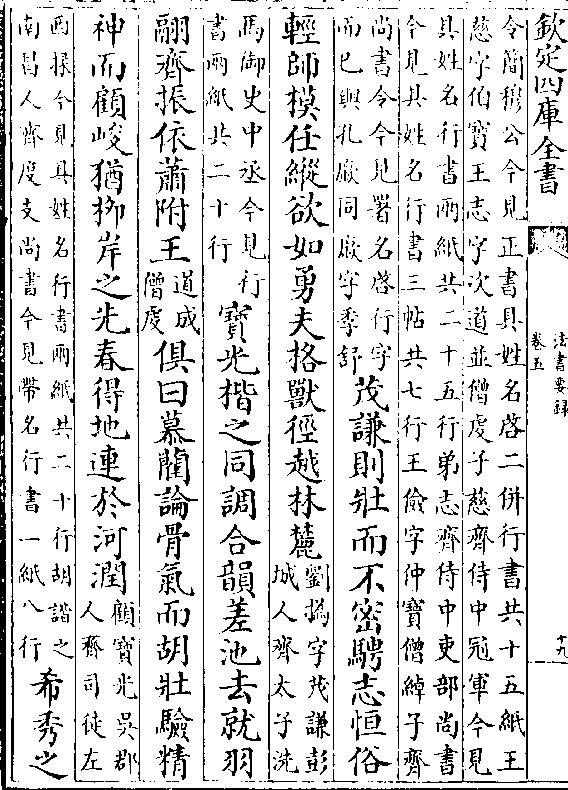 欽定四庫全書
法書要録
卷五
十九
令簡穆公今見正書具姓名啓二併行書共十五紙王
慈字伯寶王志字次道並僧虔子慈齊侍中冠軍今見
具姓名行書兩紙共二十五行弟志齊侍中吏部尚書
今見具姓名行書三帖共七行王儉字仲寶僧綽子齊
尚書令今見署名啓行字
而已與孔廠同廠字季舒
茂謙則壯而不密騁志恒俗
輕師模任縱欲如勇夫格獸徑越林麓
劉撝字茂謙彭
城人齊太子洗
馬御史中丞今見行
書兩紙共二十行
寶光楷之同調合韻差池去就羽
翮齊振依蕭附王
道成
僧虔
俱曰慕藺論骨氣而胡壯驗精
神而顧峻猶柳岸之先春得地連於河潤
顧寶光吳郡
人齊司徒左
西掾今見具姓名行書兩紙共二十行胡諧之
南昌人齊度支尚書今見帶名行書一紙八行
希秀之